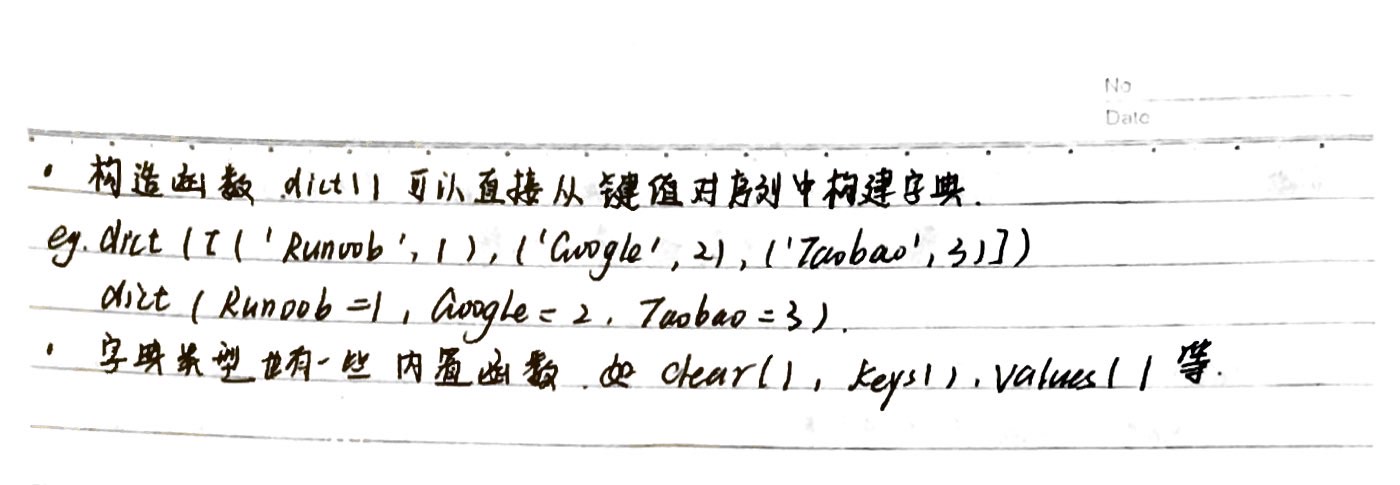 No
Date
· 构造函数 dict() 可以直接从键值对序列中构建字典.
eg. dict([('Runoob', 1), ('Google', 2), ('Taobao', 3)])
dict(Runoob=1, Google=2, Taobao=3).
· 字典类型也有一些内置函数.如 clear(), keys(), values()等.